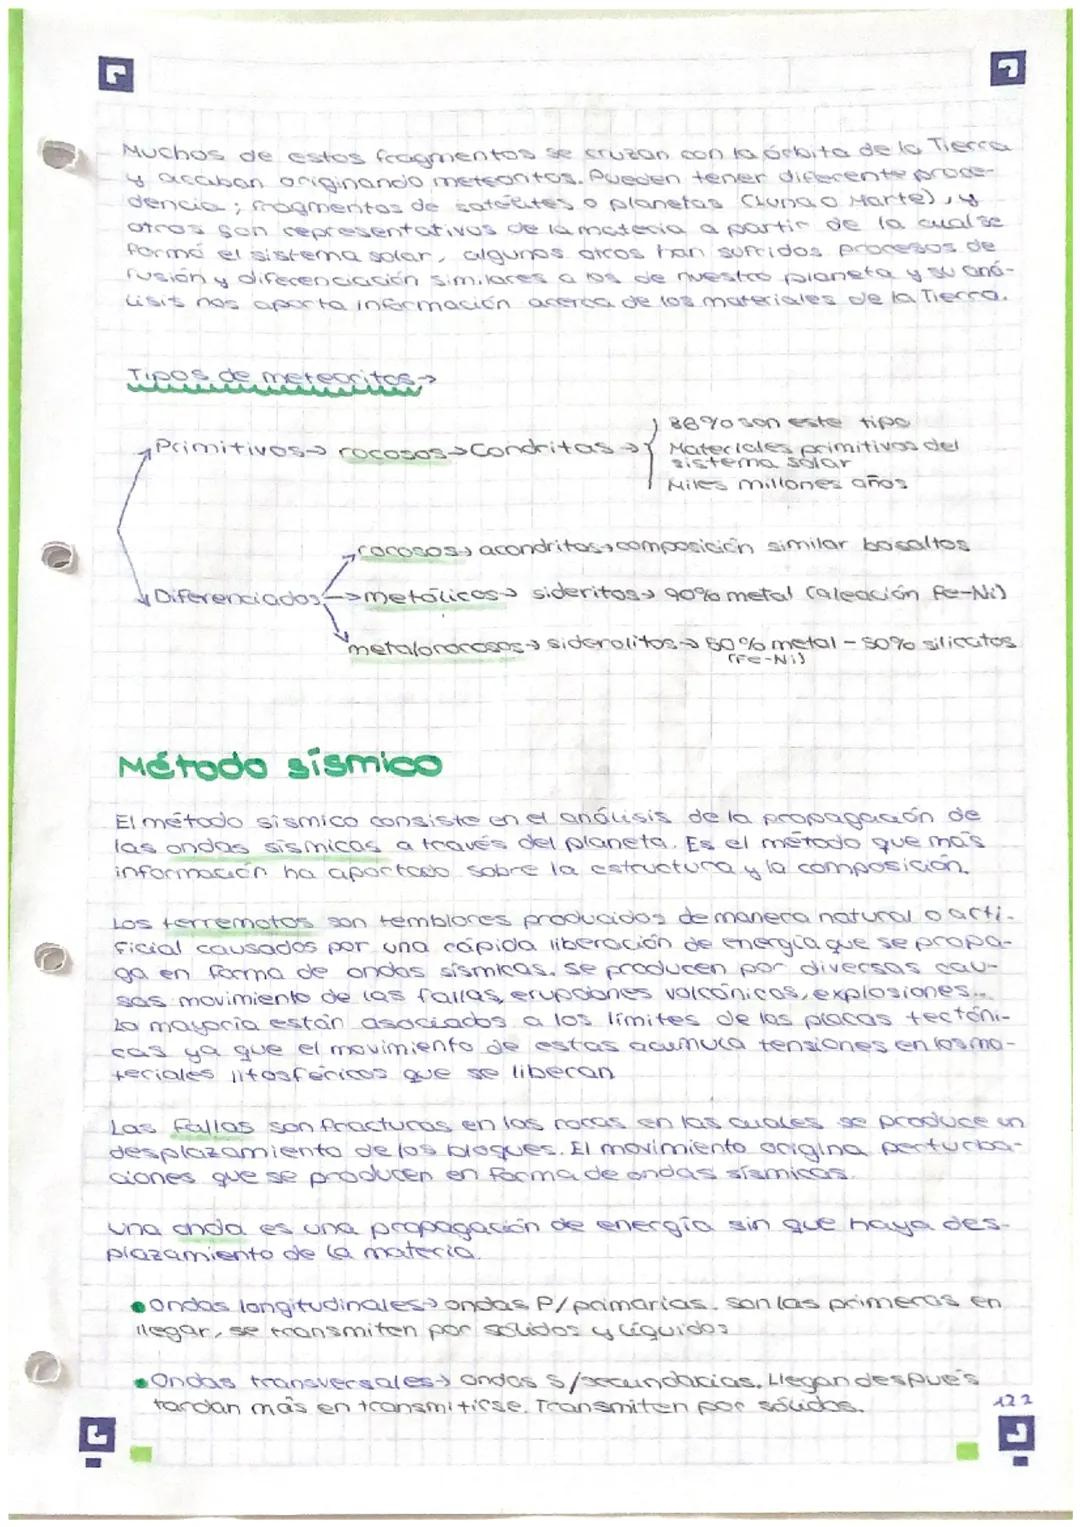 Muchos de estos fragmentos se cruzan con la órbita de la Tierra
y acaban originando meteoritos. Pueden tener diferente proce-
dencia; fragmentos de satélites o planetas (Luna o Marte), y
otros son representativos de la materia a partir de la cual se
formó el sistema solar, algunos otros han sufridos procesos de
fusión y diferenciación similares a los de nuestro planeta y su aná-
lisis nos aporta información acerca de los materiales de la Tierra.
Tipos de meteoritos→
Primitivos→ rocosos→Condritas→
86% son este tipo
Materiales primitivos del
sistema solar
Miles millones años
Diferenciados
rocosos→ acondritas→composición similar basaltos
→metálicos→ sideritos→ 90% metal (aleación Fe-Ni)
metalorocosos→ siderolitos→ 50% metal - 50% silicatos
(Fe-Ni)
Método sísmico
El método sísmico consiste en el análisis de la propagación de
las ondas sísmicas a través del planeta. Es el método que más
información ha aportado sobre la estructura y la composición.
Los terremotos son temblores producidos de manera natural o arti-
ficial causados por una rápida liberación de energía que se propa-
ga en forma de ondas sísmicas. Se producen por diversas cau-
sas movimiento de las fallas, erupciones volcánicas, explosiones...
La mayoría están asociados a los límites de las placas tectóni-
cas ya que el movimiento de estas acumula tensiones en los ma-
teriales litosféricos que se liberan
Las fallas son fracturas en las rocas en las cuales se produce un
desplazamiento de los bloques. El movimiento origina perturba-
ciones que se producen en forma de ondas sísmicas.
Una onda es una propagación de energía sin que haya des-
plazamiento de la materia.
• Ondas longitudinales→ ondas P/primarias. son las primeras en
llegar, se transmiten por sólidos y líquidos
• Ondas transversales→ ondas S/secundarias. Llegan después
tardan más en transmitirse. Transmiten por sólidos.
122